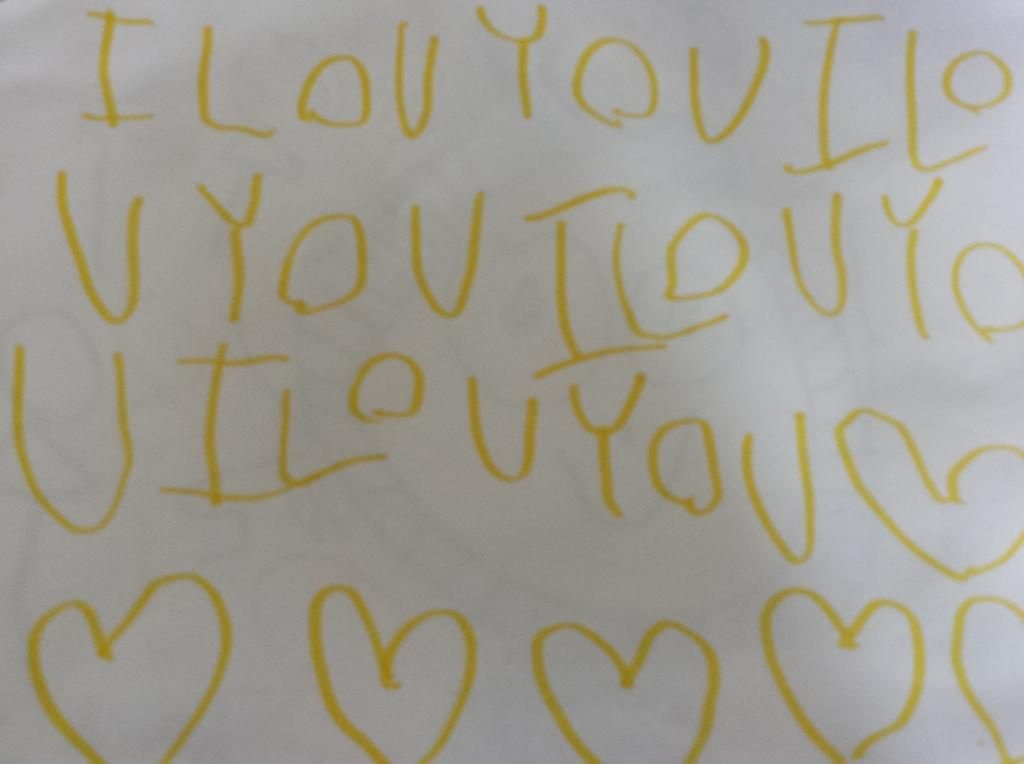 I LOU YOU I LO
U YOU I LOU YO
U I LO U YOU